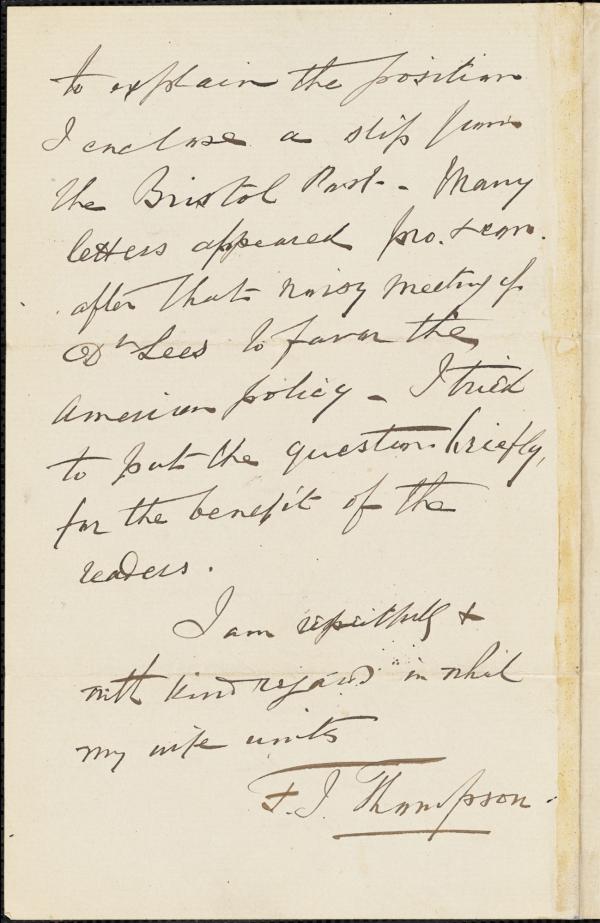 to explain the position
I enclose a slip from
the Bristol Post - Many
letters appeared pro. & con.
after that noisy meeting of
Dr Lees to favor the
American policy - I tried
to put the question briefly,
for the benefit of the
readers.
I am respectfully &
with kind regards in which
my wife unites
F. J. Thompson.